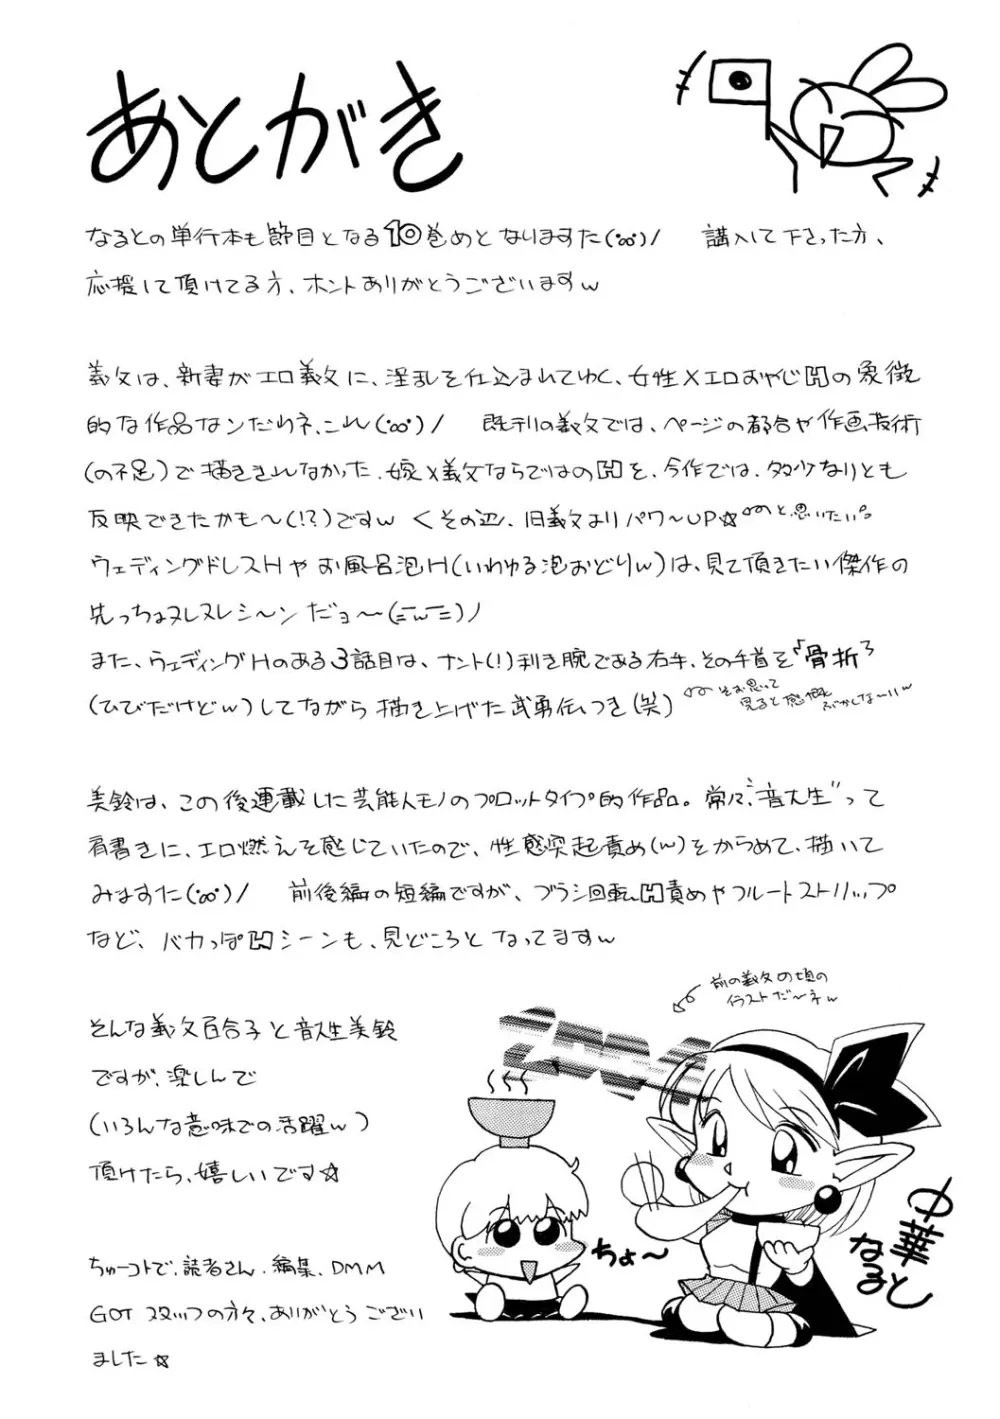 あとがき
なるとの単行本も節目となる10巻めとなりますた(°∞°)/　講入して下さった方、
応援して頂けてる方、ホントありがとうございますw
義父は、新妻がエロ義父に、淫乱を仕込まれてゆく、女性×エロおやじHの象徴
的な作品なンだわネ、これ(°∞°)/　既刊の義父では、ページの都合や作画技術
(の不足)で描ききれなかった、嫁×義父ならではのHを、今作では、多少なりとも
反映できたかも〜(!?)ですw くその辺、旧義父よりパワ〜UP☆と、思いたい。
ウェディングドレスHやお風呂泡H(いわゆる泡おどりw)は、見て頂きたい傑作の
先っちょヌレヌレシ〜ンだョ〜(=w=)ノ
また、ウェディングHのある3話目は、ナント(!)利き腕である右手、その手首を「骨折」
(ひびだけどw)してながら描き上げた武勇伝つき(笑)
そお思って
見ると感慨
ぶかしな〜いw
美鈴は、この後連載した芸能人モノのプロットタイプ的作品。常々、"音大生"って
肩書きに、エロ燃えを感じていたので、性感突起責め(w)をからめて、描いて
みますた(°∞°)/　前後編の短編ですが、ブラシ回転H責めやフルートストリップ
など、バカっぽHシーンも、見どころとなってますw
前の義父の頃の
イラストだ〜ネw
そんな義父百合子と音大生美鈴
ですが、楽しんで
(いろんな意味での活躍w)
頂けたら、嬉しいです☆
2004
ちょ〜
中華
なると
ちゅーコトで、読者さん、編集、DMM
GOTスタッフの方々、ありがとうござい
ました☆